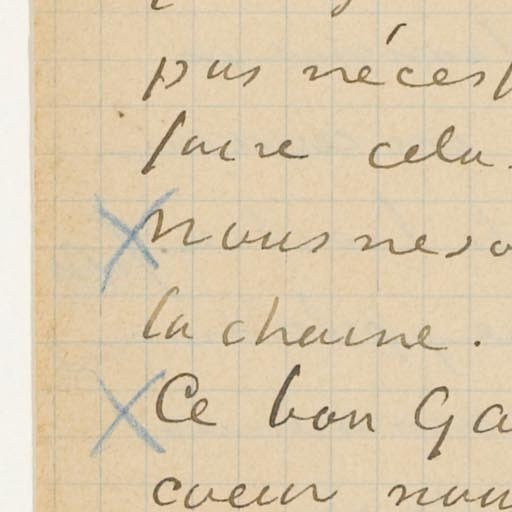 pas néces
faire cela.
nous ne so
la chaine.
Ce bon Ga
coeur nou